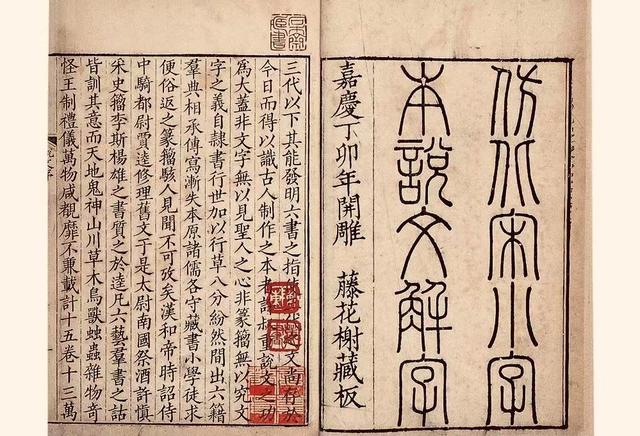 仿北宋小字
本說文解字
嘉慶丁卯年開雕 藤花榭藏板
三代以下其能發明六書之指文尚存於
今日而得以識古人制作之本者許叔重說文之功
為大蓋非文字無以見聖人之心非篆籀無以究文
字之義自隸書行世加以行草八分紛然間出六籍
羣典相承傳寫漸失本原諸儒各守藏書小學徒求
便俗返之篆籀駭人見聞不可攷矣漢和帝時詔侍
中騎都尉賈逵修理舊文于是太尉南國祭酒許慎
采史籀李斯楊雄之書質之於逵凡六藝羣書之詁
皆訓其意而天地鬼神山川草木鳥獸䖵蟲雜物奇
怪王制禮儀萬物咸覩靡不兼載計十五卷十三萬